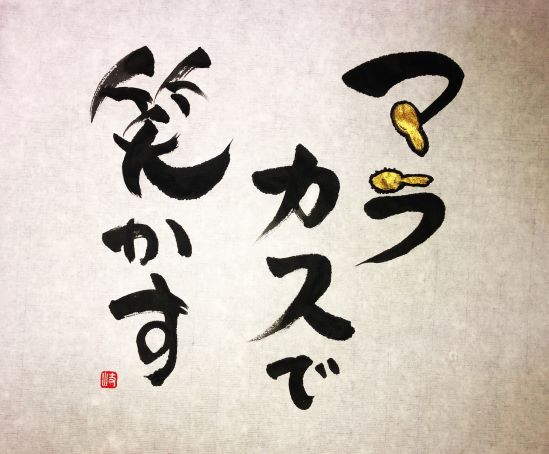 マラ
カスで
笑かす